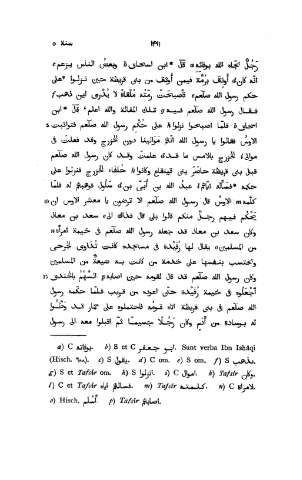 سنة ٥ ١۴٩١
رجلٌ نجّاه الله بوفائه a) قال ابن اسحاق b) وبعض الناس يزعم c)
انّه كان d) أُوثق برُمّة فيمن أُوثق من بنى قريظة حين نزلوا على
حكم رسول الله صلّعم فاصبحت رمّته ملقاة لا يُدرى اين ذهب f)
فقال رسول الله صلّعم فيه g) تلك المقالة والله اعلم، قال ابن
اسحاق h) فلمّا اصبحوا نزلوا i) على حُكم رسول الله صلّعم فتواثبت 5
الأوس فقالوا يا رسول الله انّهم موالينا دون الخزرج وقد فعلت فى
موالى k) الخزرج بالامس ما قد علمت وقد كان رسول الله صلّعم
قبل بنى قريظة حاصر بنى قينقاع وكانوا حلفاء الخزرج فنزلوا على
حكمه فسأله ايّاهم l) عبد الله بن أُبَىّ بن سلول فوهبهم له فلمّا
كلّمه m) الاوس قال رسول الله صلّعم الا ترضون يا معشر الاوس ان 10
يحكم فيهم رجلٌ منكم قالوا بلى قال فذاك الى سعد بن معاذ
وكان سعد بن معاذ قد جعله رسول الله صلّعم فى خيمة امرأة n)
من المسلمين o) يقال لها رُفيدة فى مسجده كانت تداوى الجرحى
وتحتسب بنفسها على خدمة من كانت به ضيعة من المسلمين
وكان رسول الله صلّعم قد قال لقومه حين اصابه p) السهم بالخندق 15
اجعلوه فى خيمة رفيدة حتى اعوده من قريب فلمّا حكّمه رسول
الله صلّعم فى بنى قريظة اتاه قومه فاحتملوه على حمار قد وطّئوا
له بوسادة من أدم وكان رجلًا جسيمًا ثم اقبلوا معه الى رسول
a) C بوفاته. b) S et C ابو جعفر. Sunt verba Ibn Ishâqi
(Hisch. ٦٨٨). c) S يقول. d) C om. e) S om. f) S يذهب.
g) S et Tafsîr om. h) S om. i) S انزلوا. k) C اموال. Tafsîr وكان.
l) C et Tafsîr اياه. m) Tafsîr كلمته. n) C لامراة.
o) Hisch. أسلم. p) Tafsîr اصابهم.